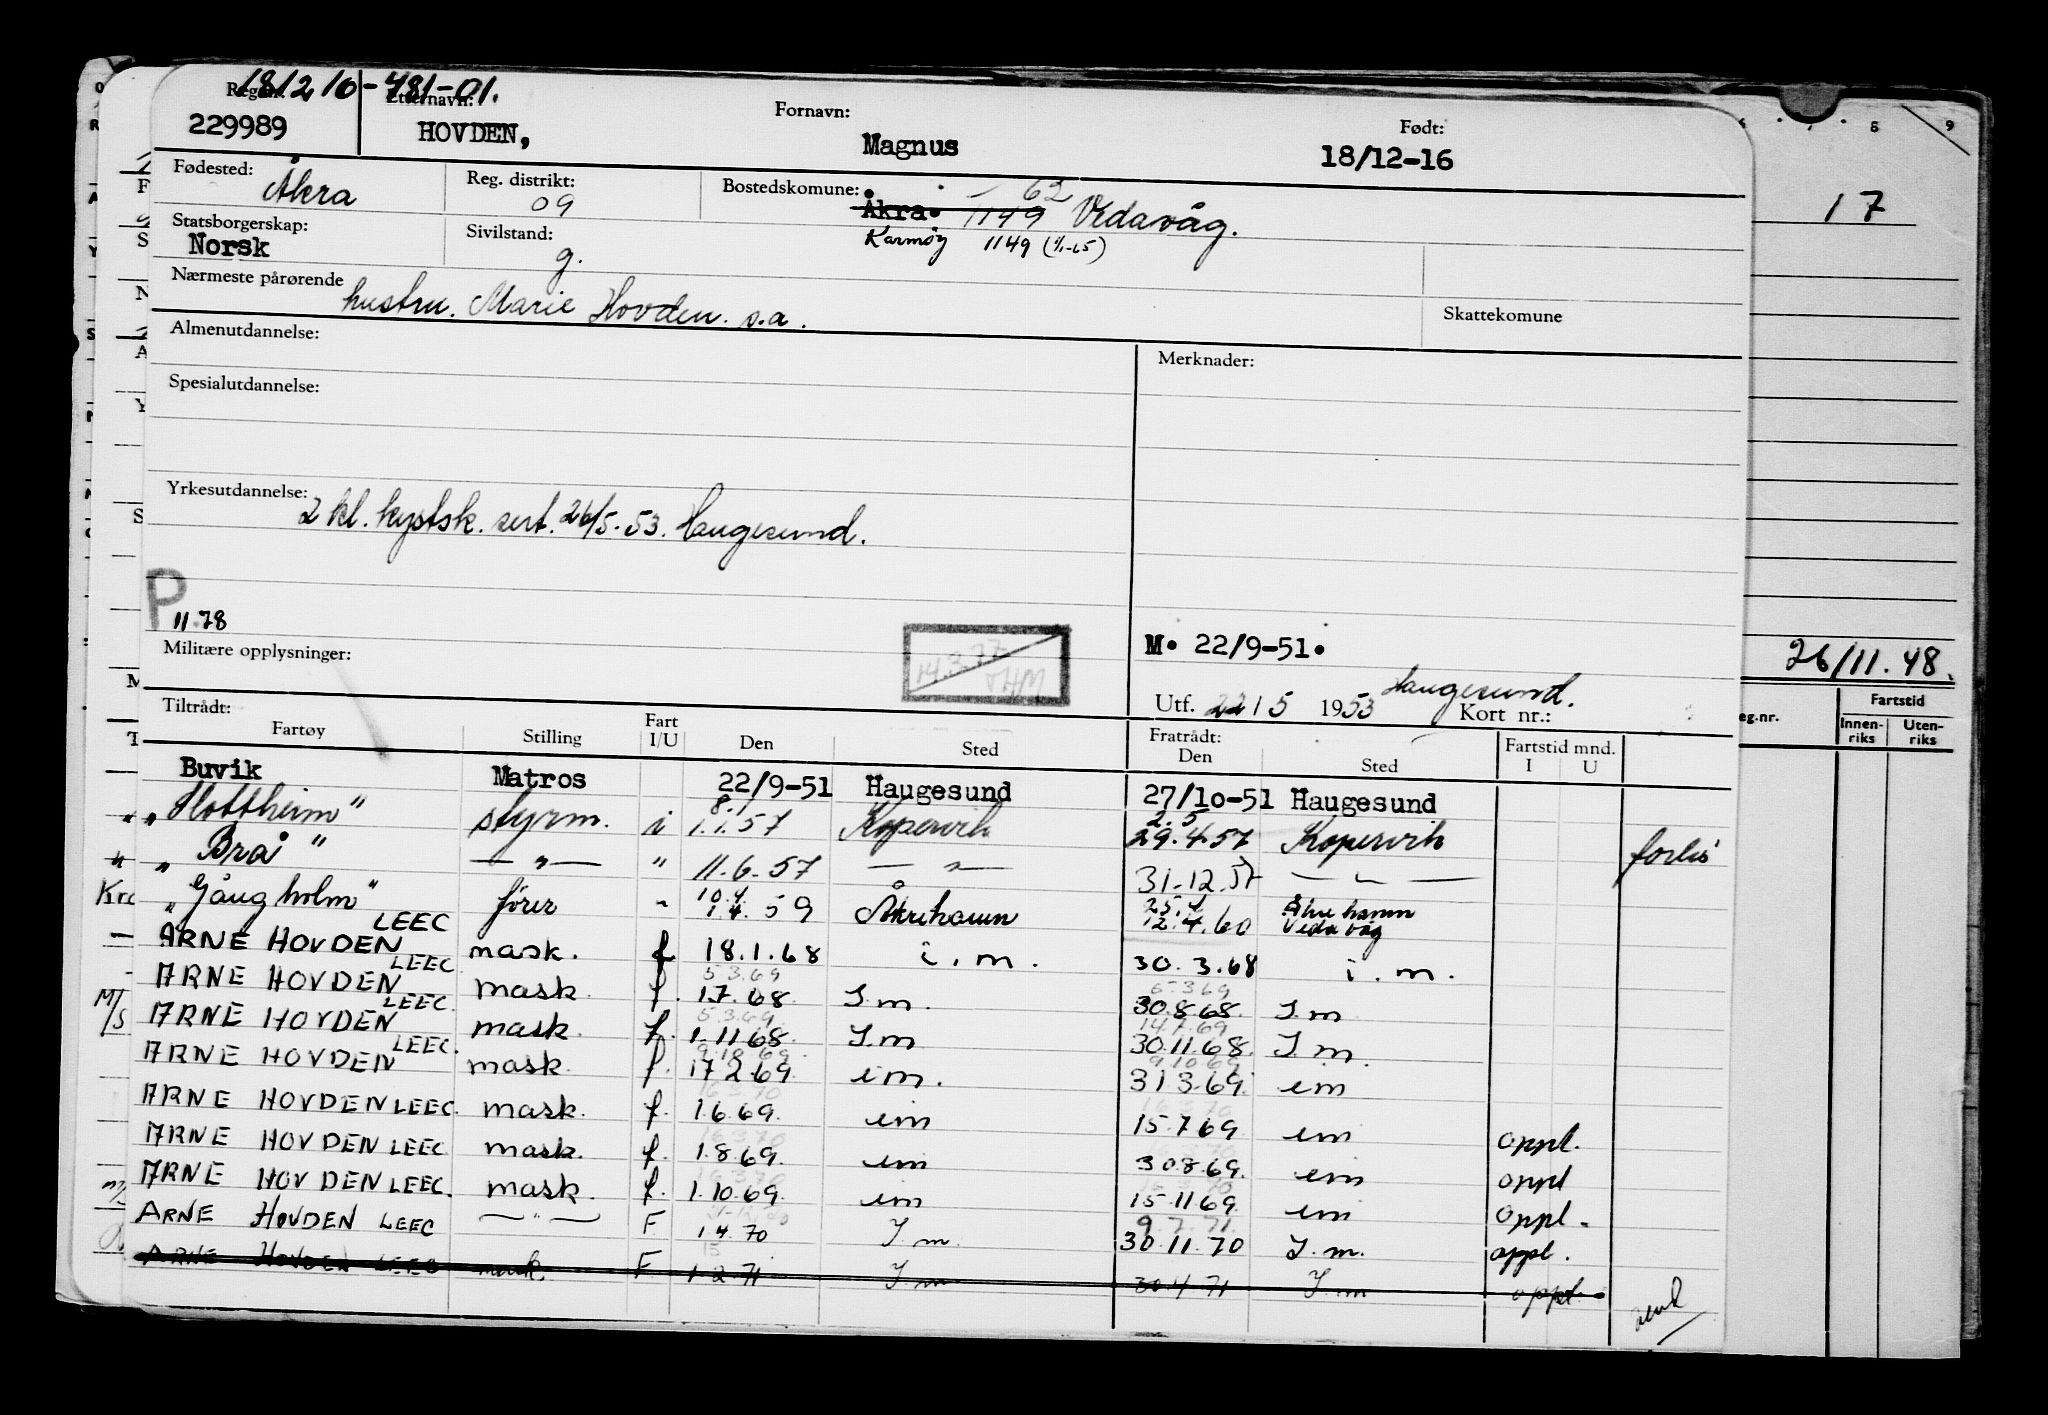 181216-481-01.
Reg.nr.
229989
Etternavn:
HOVDEN,
Fornavn:
Magnus
Født:
18/12-16
Fødested:
Åkra
Reg. distrikt:
09
Bostedskomune:
Åkra. 1149 62 Vedavåg.
Karmøy 1149 (1/1-65)
Statsborgerskap:
Norsk
Sivilstand:
g.
Nærmeste pårørende
hustru. Marie Hovden. s.a.
Skattekomune
Almenutdannelse:
Merknader:
Spesialutdannelse:
Yrkesutdannelse:
2 kl. kystsk. sert. 26/5-53. Haugesund.
P
11.78
Militære opplysninger:
14.3.77
M. 22/9-51.
Utf. 22/5 1953 Haugesund.
Kort nr.:
Tiltrådt:
Fratrådt:
Fartøy Stilling Fart I/U Den Sted Den Sted Fartstid mnd. I U
Buvik Matros 22/9-51 Haugesund 27/10-51 Haugesund
8.1 2.5
"Hottheim" styrm. i 1.1.57 Kopervik 29.4.57 Kopervik forlis
"Brå" — " — " 11.6.57 — " — 31.12.57 — " —
10.4 25.4 Åkrehamn
"Gåsholm" fører " 1.4.59 Åkrehamn 12.4.60 Vedavåg
ARNE HOVDEN LEEC mask. f 18.1.68 i.m. 30.3.68 i.m.
5.3.69 6.3.69
ARNE HOVDEN LEEC mask. f. 1.7.68. I.m. 30.8.68. I.m
5.3.69 14.7.69
ARNE HOVDEN LEEC. mask. f. 1.11.68 I.m 30.11.68. I.m.
ARNE HOVDEN LEEC. mask. f. 17.2.69. im. 31.3.69. im
ARNE HOVDEN LEEC. mask. f. 1.6.69. im 15.7.69 im oppl.
ARNE HOVDEN LEEC mask. f. 1.8.69. im 30.8.69. im oppl
ARNE HOVDEN LEEC. mask. f. 1.10.69. im 15.11.69 im oppl.
9.7.71.
ARNE HOVDEN LEEC — " — F 1.4.70 I m. 30.11.70 I.m. oppl.
ARNE HOVDEN LEEC mask. F 1.2.71 I.m 30.4.71 I.m oppl.
17
26/11.48.
eg.nr.
Fartstid
Innen-riks
Uten-riks